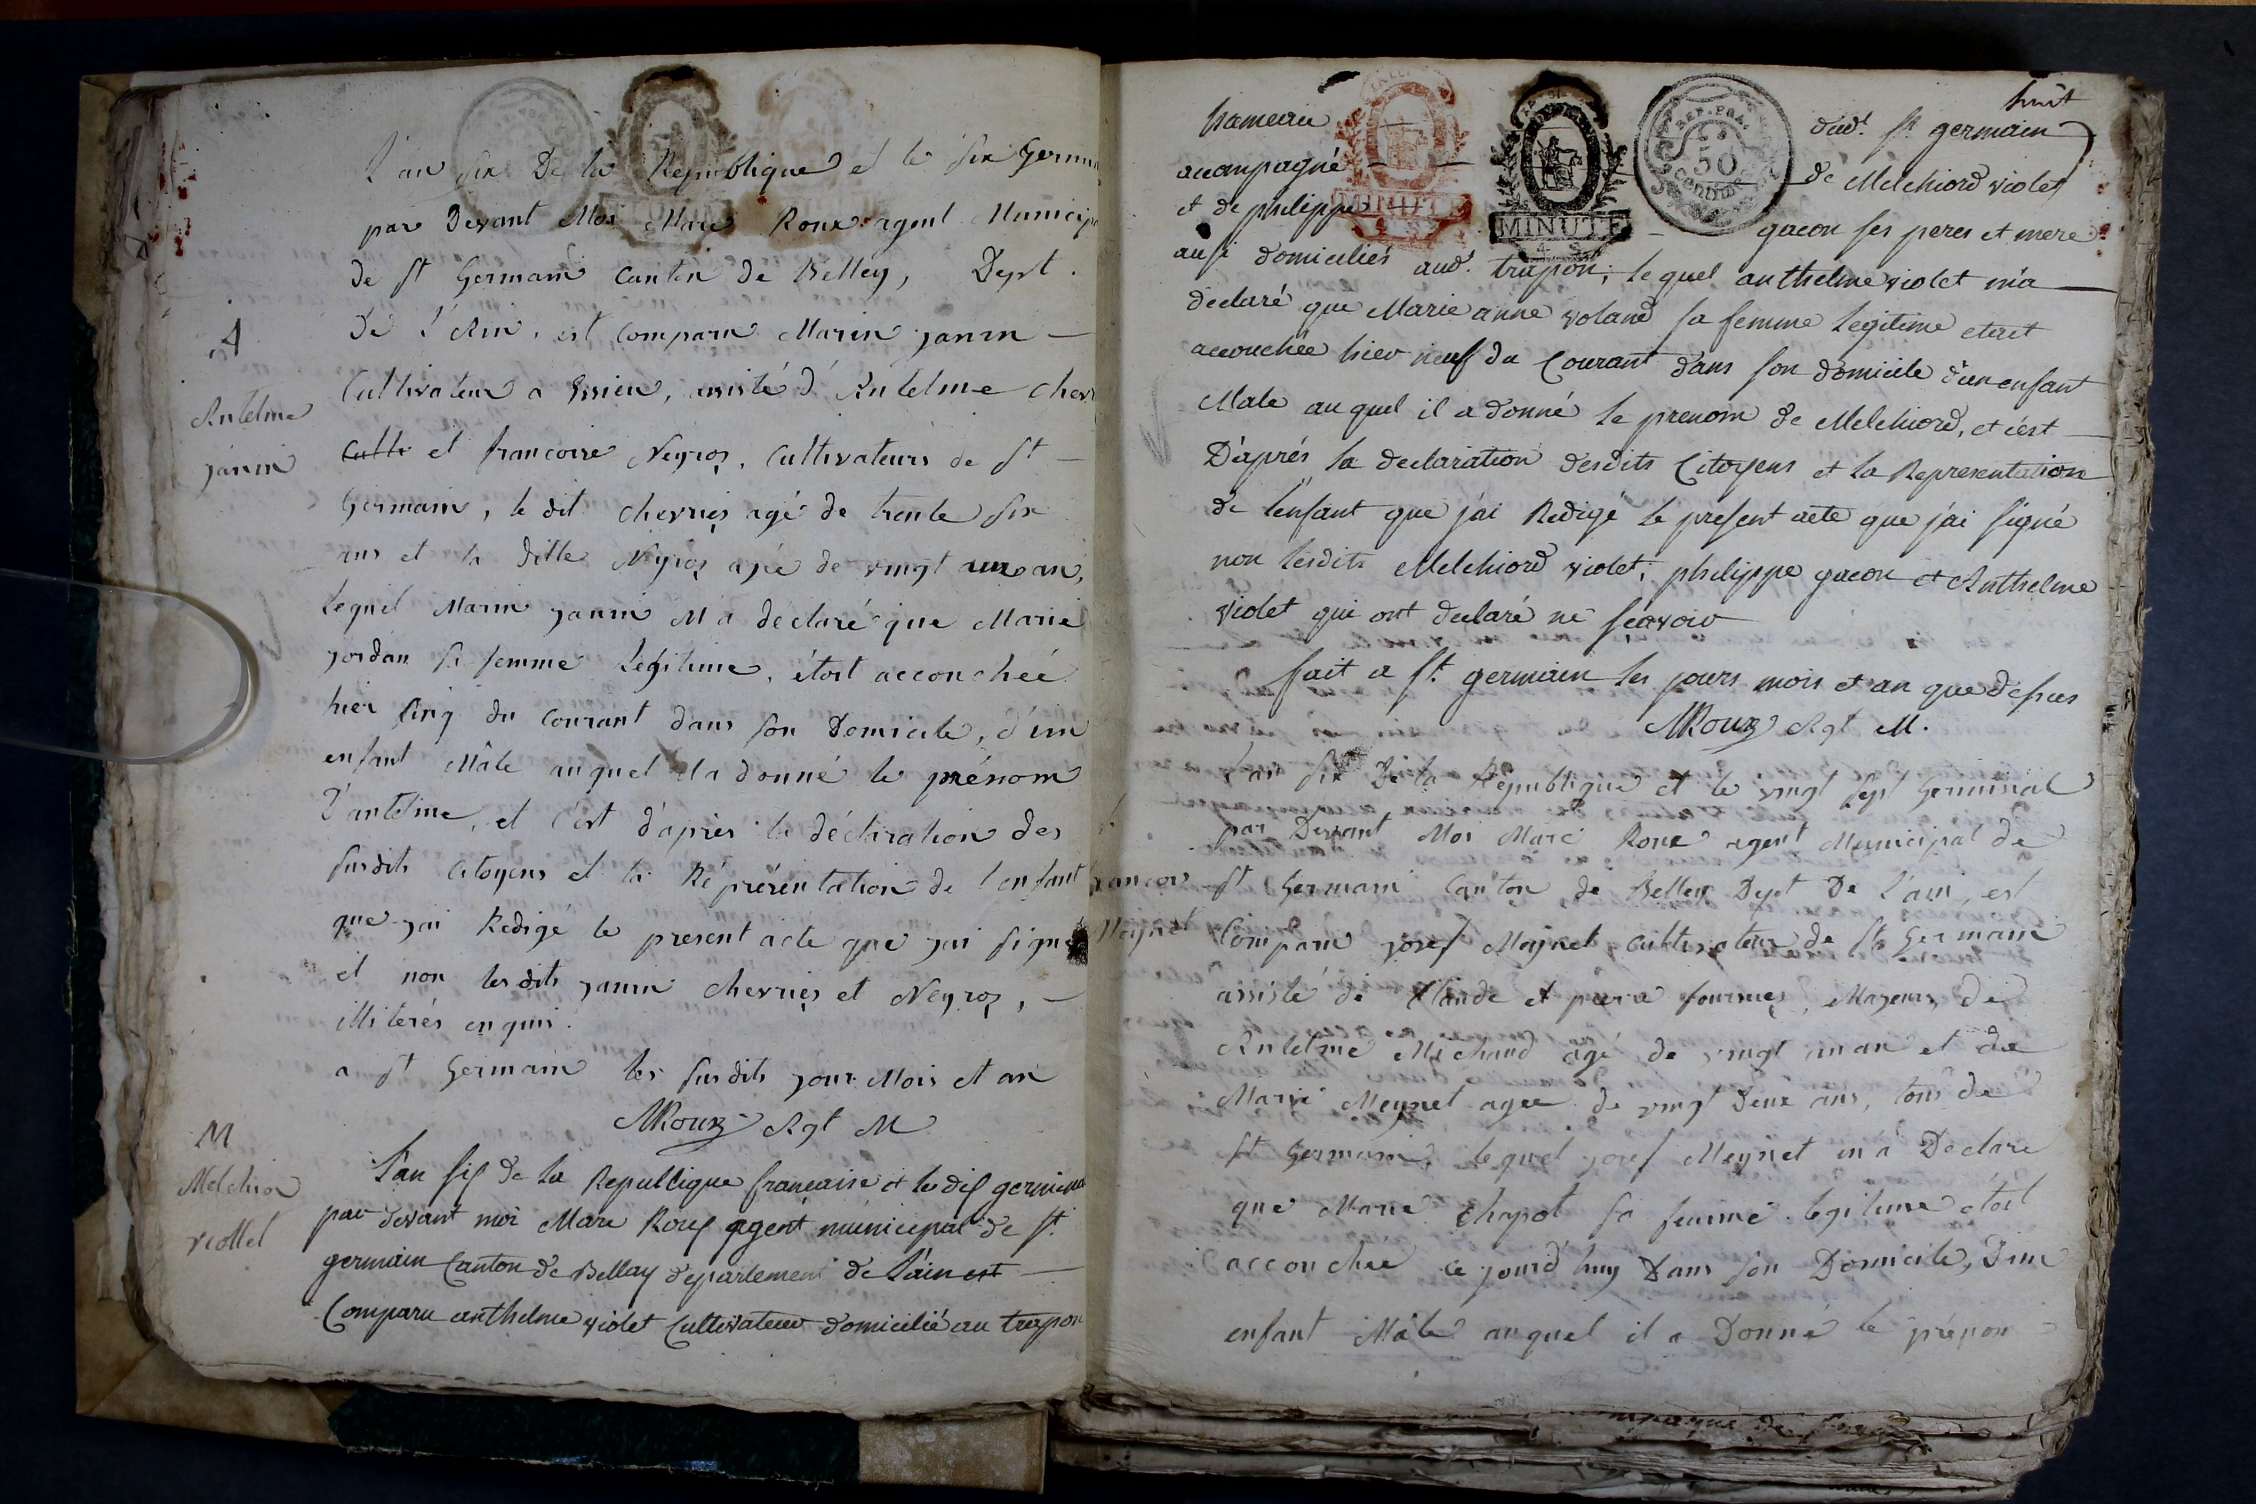 L'an six De la Republique et le six Germi
par Devant Moi Marc Roux agent Municip
de St Germain Canton de Belley, Dept.
De l'Ain, est comparu Marin janin
A
Cultivateur a Essieu, assisté d'Antelme chev
Antelme
janin
Cultr et francoise Neyroz, Cultivateurs de St
Germain, le dit chevrier agé de trente six
ans et la ditte Neyroz agée de vingt ans,
lequel Marin janin M'a declaré que Marie
jordan sa femme Legitime, étoit accouchéé
hier Cinq du Courant dans son Domicile, d'un
enfant Mâle auquel il a donné le prénom
d'antelme, et C'est d'après la déclaration des
susdits Citoyens et la Réprésentation de l'enfant
que j'ai Redigé le present acte que j'ai signé
et non lesdits janin chevrier et Neyroz,
illiterés enquis.
a St Germain les susdits jour Mois et an
MRoux Agt M
M
Melchior
viollet
L'an six de la Republique francaise et le dix germinal
par devant moi Marc Roux agent municipal de St.
germain Canton de Belley departement de l'ain est
Comparu anthelme violet Cultivateur domicilié au trapon
huit
hameau dud. St germain
accompagné de Melchiord violet
et de philippe gacon ses peres et mere
MINUTE
MINUTE
REP. FRA.
50
CENTIMES
ausi domiciliés aud. trapon; lequel anthelme violet m'a
declaré que Marie anne voland sa femme legitime etoit
accouchée hier neuf du Courant dans son domicile d'un enfant
Male auquel il a donné le prenom de Melchiord, et c'est
D'après la declaration desdits Citoyens et la Representation
de l'enfant que j'ai Redigé le present acte que j'ai signé
non lesdits Melchiord violet, philippe gacon et Anthelme
violet qui ont declaré ne sçavoir
fait a St. germain les jours mois et an que dessus
MRoux Agt M.
L'an six De la République et le vingt sept Germinal
par Devant Moi Marc Roux agent Municipal de
St Germain Canton de Belley Dept De l'ain, est
francois
Meynet
Comparu josef Meynet cultivateur de St Germain
assisté de Claude et pierre fournier, Majeurs, de
Antelme Michaud agé de vingt un an et de
Marie Meynet agée de vingt deux ans, tous de
St Germain, lequel josef Meynet m'a Declaré
que Marie chapot sa femme legitime étoit
accouchée ce jourd'huy Dans son Domicile, D'un
enfant Mâle auquel il a Donné le prénom